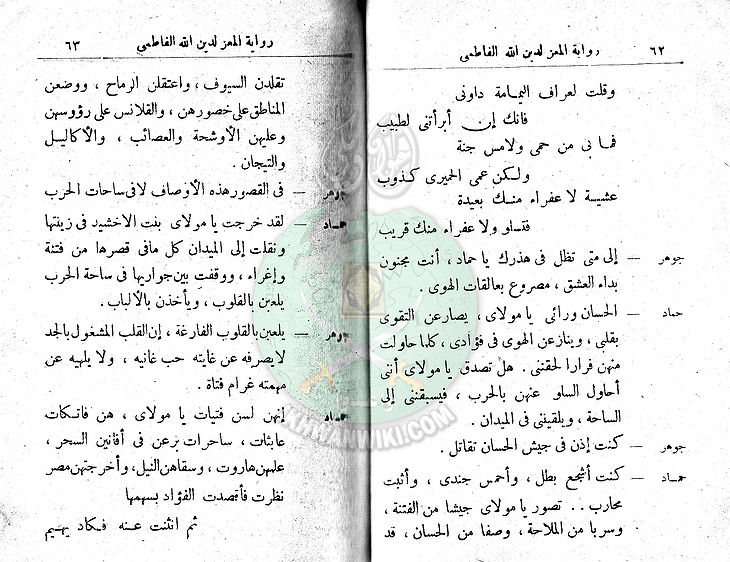 ٦٢ رواية المعز لدين الله الفاطمى
وقلت لعراف اليمامة داونى
فانك إن أبرأتنى لطبيب
فما بى من حمى ولامس جنة
ولكن عمى الحميرى كذوب
عشية لا عفراء منك بعيدة
فتسلو ولا عفراء منك قريب
جوهر — إلى متى تظل فى هذرك يا حماد ، أنت مجنون
بداء العشق ، مصروع بعالقات الهوى .
حماد — الحسان ورائى يا مولاى ، يصارعن التقوى
بقلبى ، وينازعن الهوى فى فؤادى ، كلما حاولت
منهن فرارا لحقننى . هل تصدق يا مولاى أننى
أحاول السلو عنهن بالحرب ، فيسبقننى إلى
الساحة ، ويلقيننى فى الميدان .
جوهر — كنت إذن فى جيش الحسان تقاتل .
حماد — كنت أشجع بطل ، وأحمس جندى ، وأثبت
محارب . . تصور يا مولاى جيشا من الفتنة ،
وسربا من الملاحة ، وصفا من الحسان ، قد
رواية المعز لدين الله الفاطمى ٦٣
تقلدن السيوف ، واعتقلن الرماح ، ووضعن
المناطق على خصورهن ، والقلانس على رؤوسهن
وعليهن الأوشحة والعصائب ، والأكاليل
والتيجان .
جوهر — فى القصور هذه الأوصاف لا فى ساحات الحرب
حماد — لقد خرجت يا مولاى بنت الاخشيد فى زينتها
ونقلت إلى الميدان كل مافى قصرها من فتنة
وإغراء ، ووقفت بين جواريها فى ساحة الحرب
يلعبن بالقلوب ، ويأخذن بالألباب .
جوهر — يلعبن بالقلوب الفارغة ، إن القلب المشغول بالجد
لا يصرفه عن غايته حب غانيه ، ولا يلهيه عن
مهمته غرام فتاة .
حماد — إنهن لسن فتيات يا مولاى ، هن فاتكات
عابثات ، ساحرات برعن فى أفانين السحر ،
علمهن هاروت ، وسقاهن النيل ، وأخرجتهن مصر
نظرت فأقصدت الفؤاد بسهمها
ثم انثنت عنه فكاد يهيم
IKHWANWIKI.COM